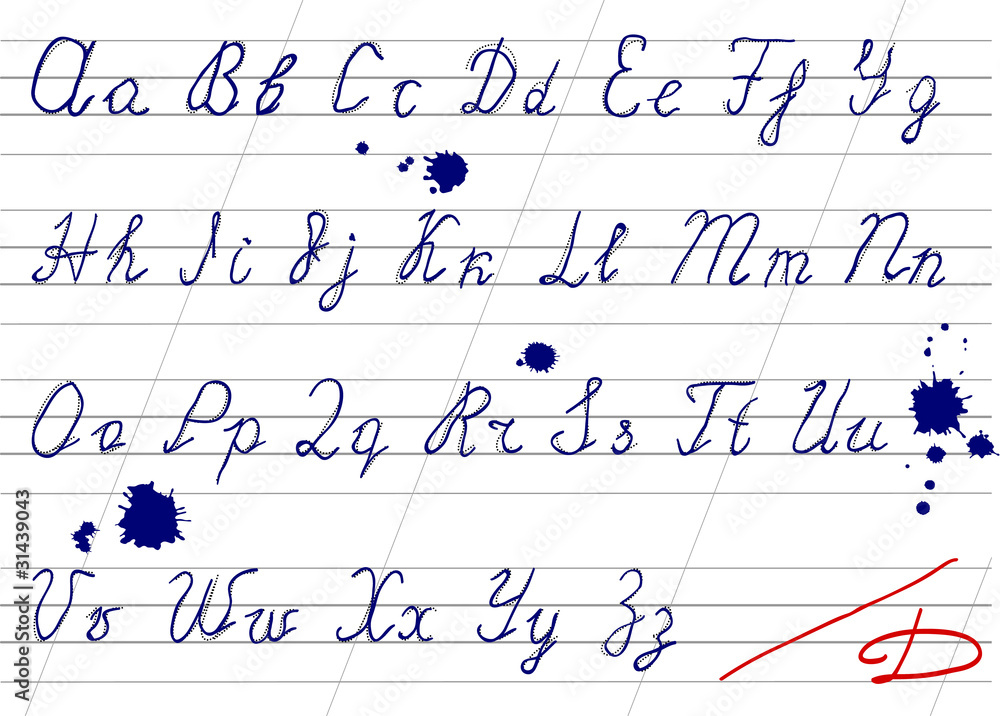 Aa Bb Cc Dd Ee Ff Gg
Hh Ii Jj Kk Ll Mm Nn
Oo Pp Qq Rr Ss Tt Uu
Vv Ww Xx Yy Zz
D
Adobe Stock | #31439043